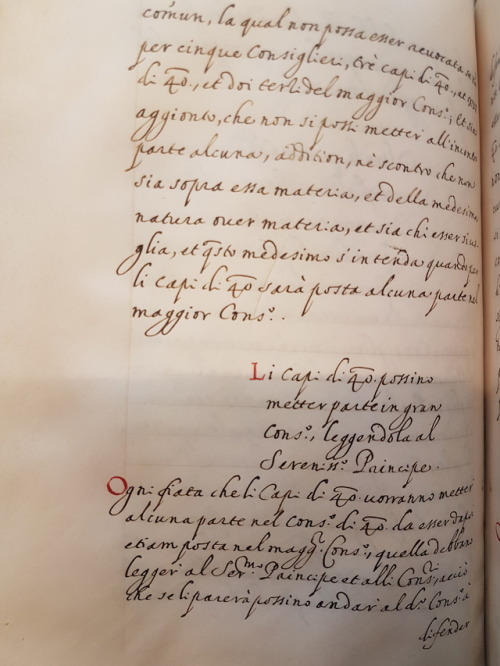 comun, la qual non possa esser reuocata se
per cinque Consiglieri, trè capi di 40., et
di 40., et doi terti del maggior Cons.º; Et sia
aggionto, che non si possi metter all'incontro
parte alcuna, addition, nè scontro che non
sia sopra essa materia, et della medesima
natura ouer materia, et sia chi esser si uo-
glia, et q̃sto medesimo s'intenda quando per
li capi di 40 sarà posta alcuna parte nel
maggior Cons.º.
Li capi di 40. possino
metter parte in gran
Cons.º, leggendola al
Sereniss.º Principe.
Ogni fiata che li Capi di 40. uorranno metter
alcuna parte nel Cons.º di 40. da esser dapò
etiam posta nel magg.r Cons.º, quella debbano
legger al Ser.mo Principe et alli Cons.ri, acciò
che se li parerà possino andar al d.º Cons.º à
difender